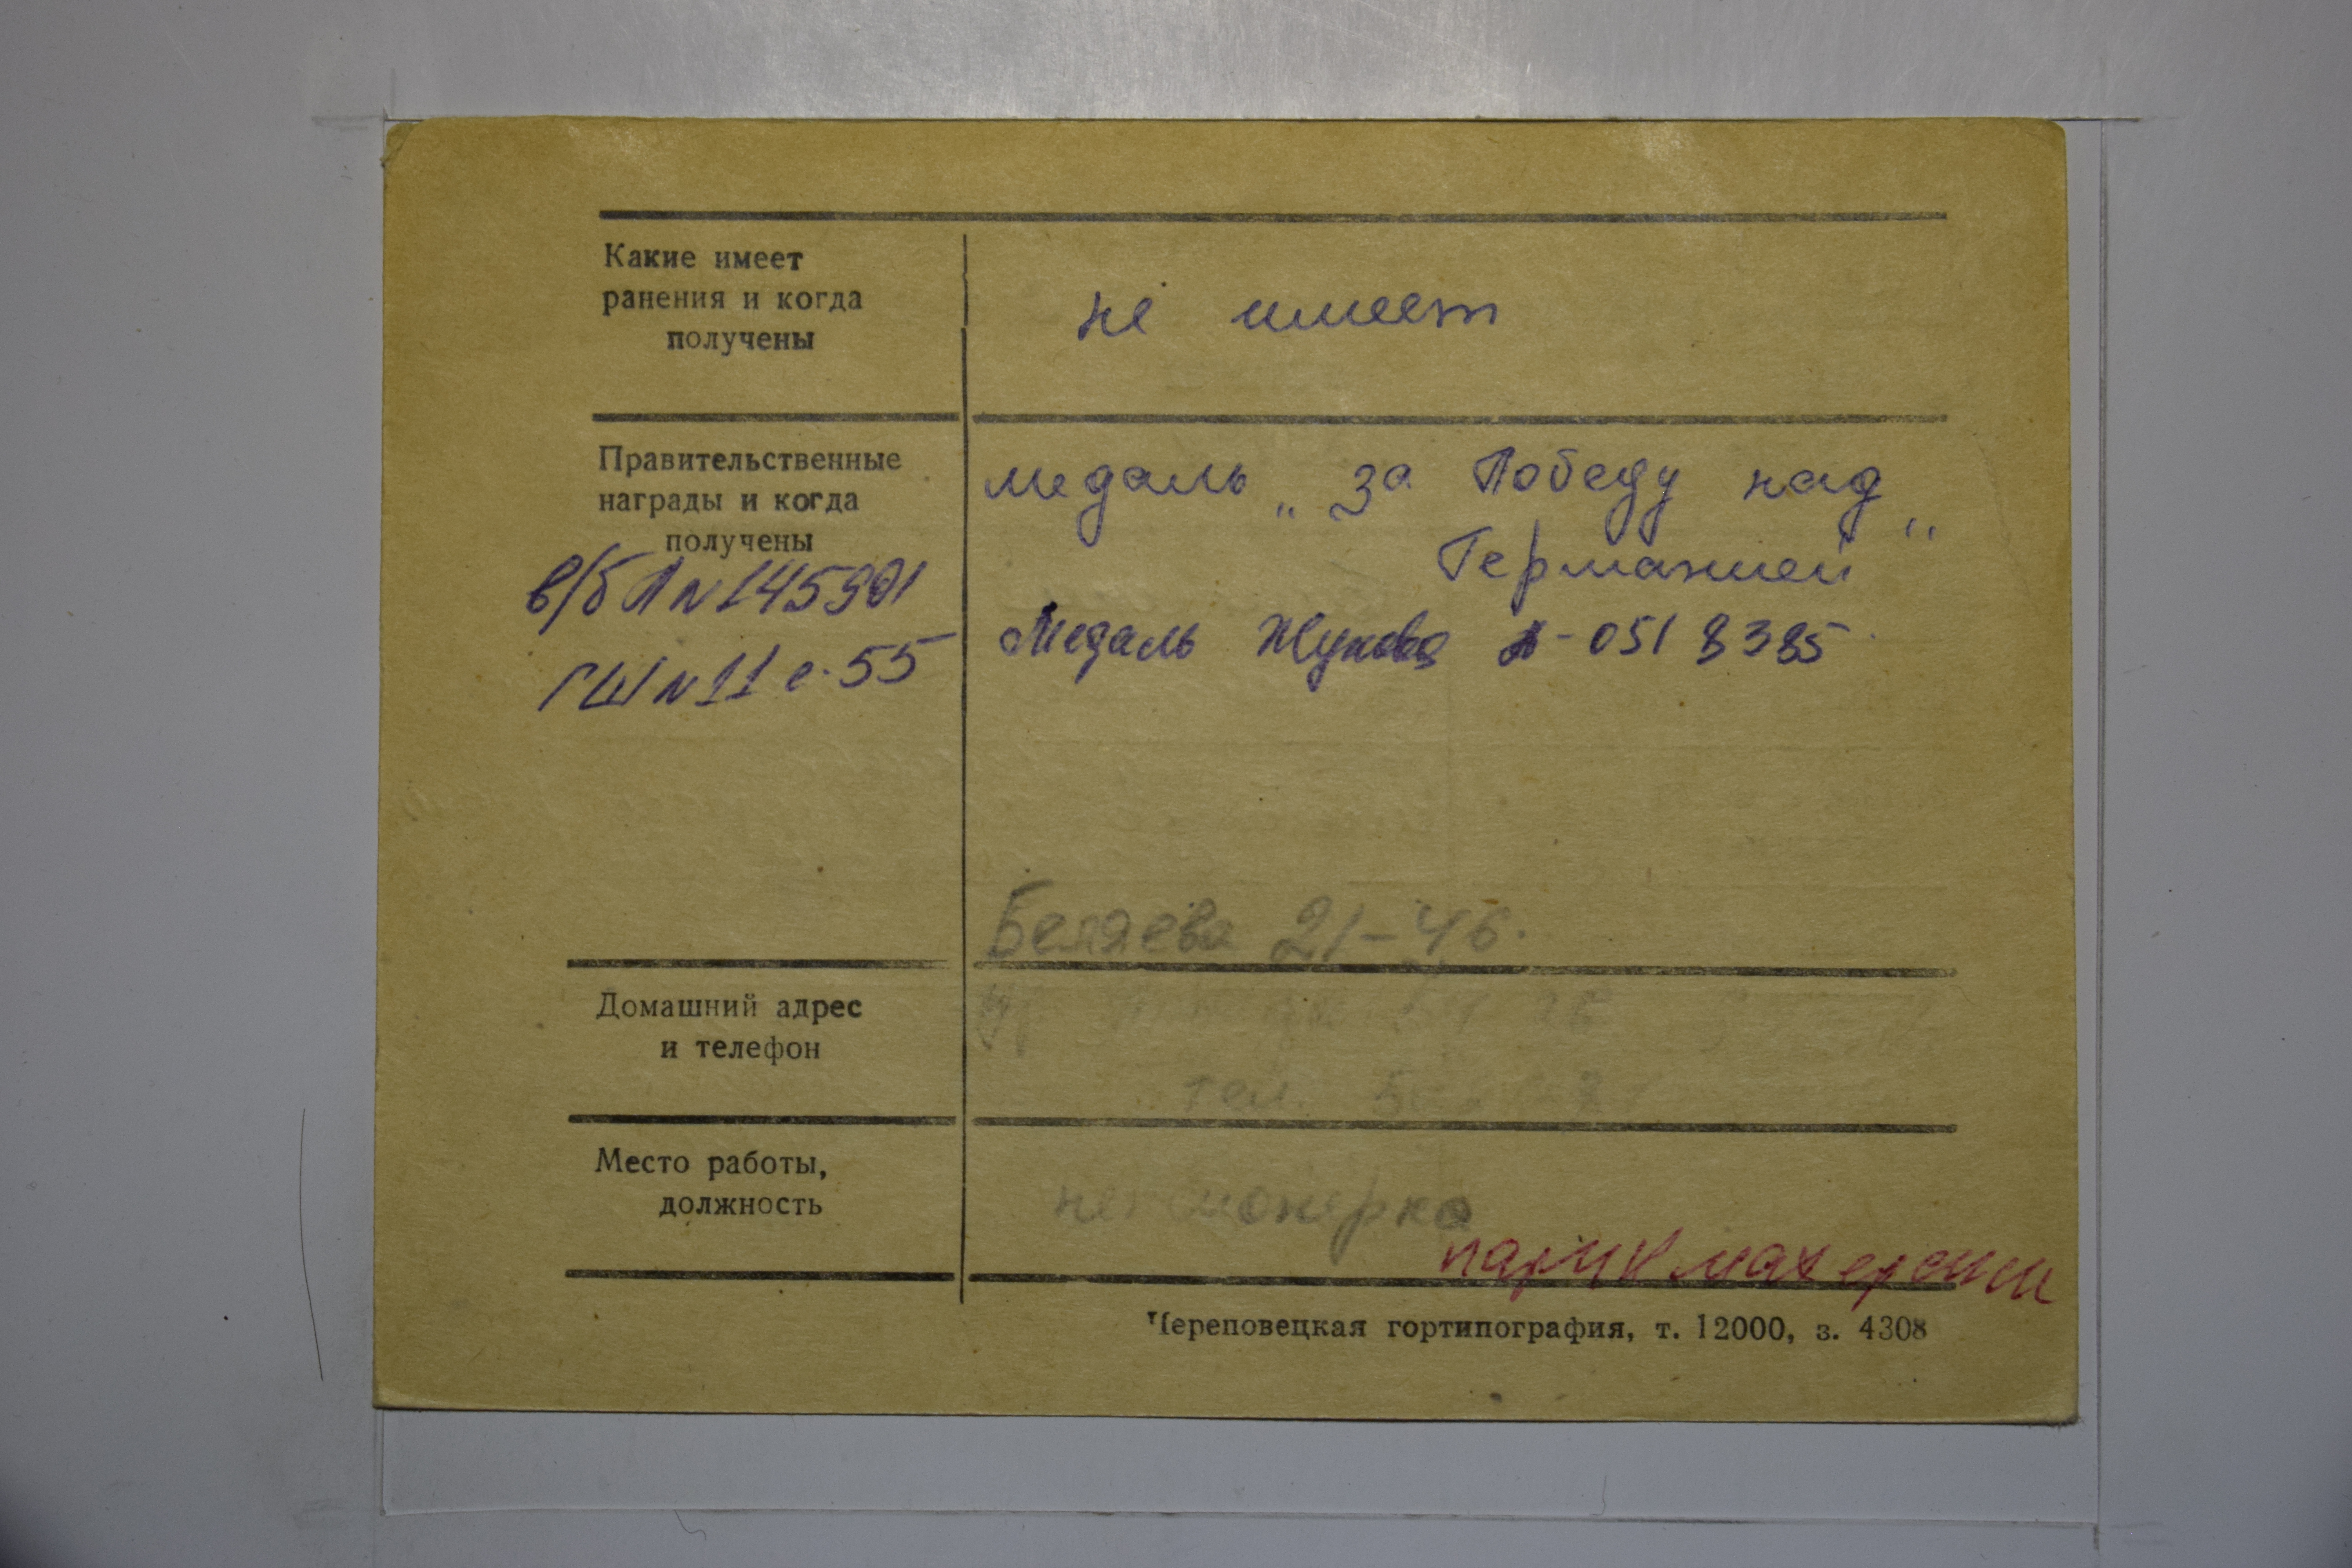 Какие имеет
ранения и когда
получены
не имеет
Правительственные
награды и когда
получены
в/б Л № 145991
ГШ № 11 с. 55
медаль „За Победу над
Германией"
Медаль Жукова А-0518385
Беляева 21-46.
Домашний адрес
и телефон
тел.
Место работы,
должность
пенсионерка
парикмахерши
Череповецкая гортипография, т. 12000, з. 4308